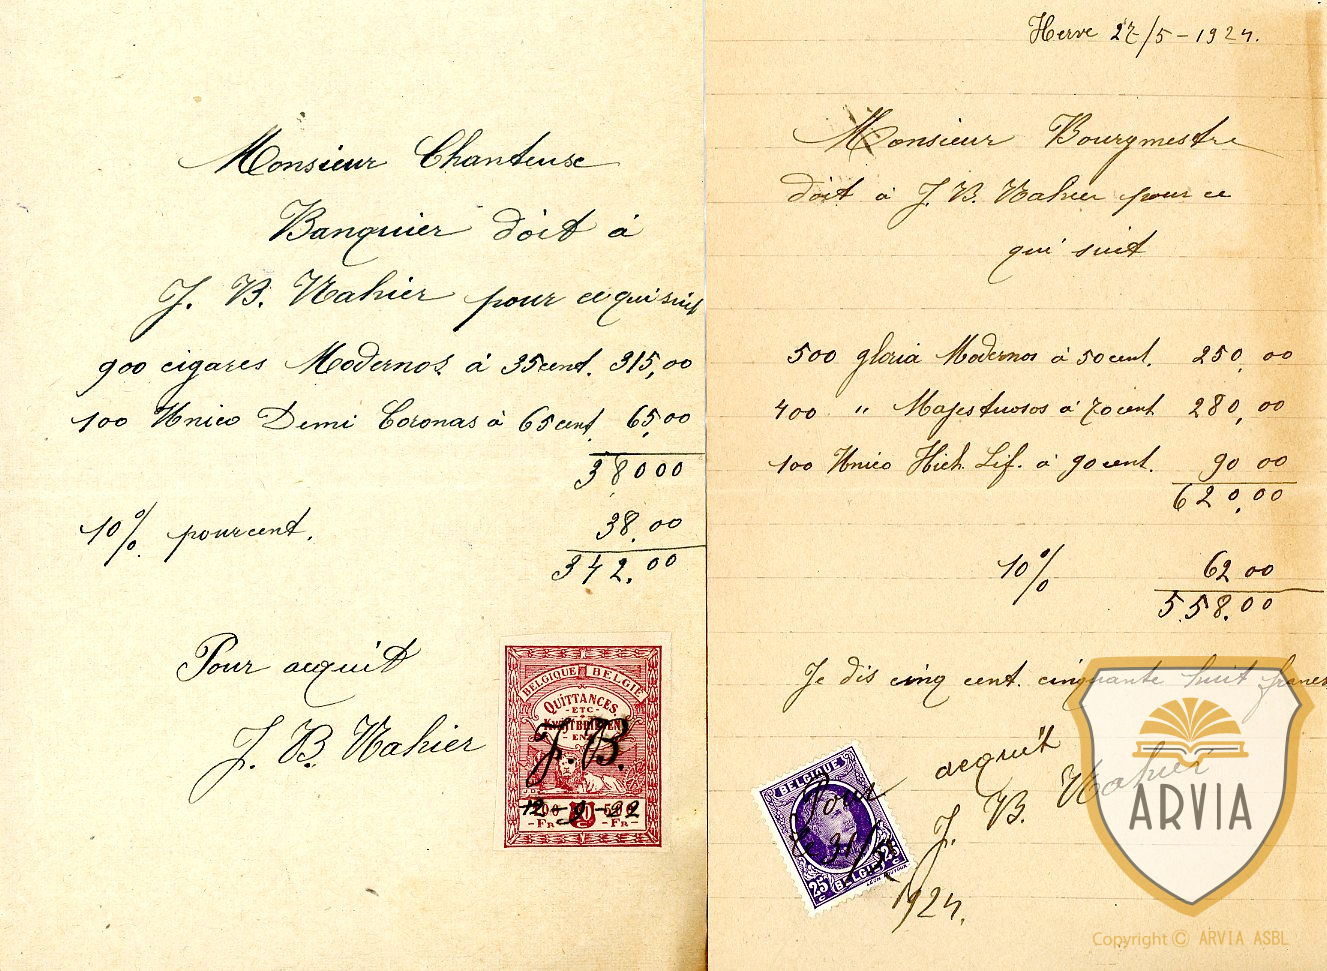 Monsieur Chanteuse
Banquier doit à
J. B. Nahier pour ce qui suit
900 cigares Modernos à 35 cent. 315,00
100 Unico Demi Coronas à 65 cent. 65,00
380 00
10% pourcent. 38.00
342.00
Pour acquit
J. B. Nahier
BELGIQUE BELGIË
QUITTANCES
ETC
KWIJTBRIEVEN
ENZ
J. B.
12-9-22
FR FR
Herve 27/5-1924.
Monsieur Bourgmestre
doit à J. B. Nahier pour ce
qui suit
500 gloria Modernos à 50 cent. 250,00
400 " Majestuosos à 70 cent 280,00
100 Unico Hich. Lif. à 90 cent. 90 00
620,00
10% 62 00
558.00
Je dis cinq cent. cinquante huit francs
Pour acquit
J. B. Nahier
Le 31/5
1924.
BELGIQUE
25 c BELGIË 25 c
ARVIA
Copyright © ARVIA ASBL